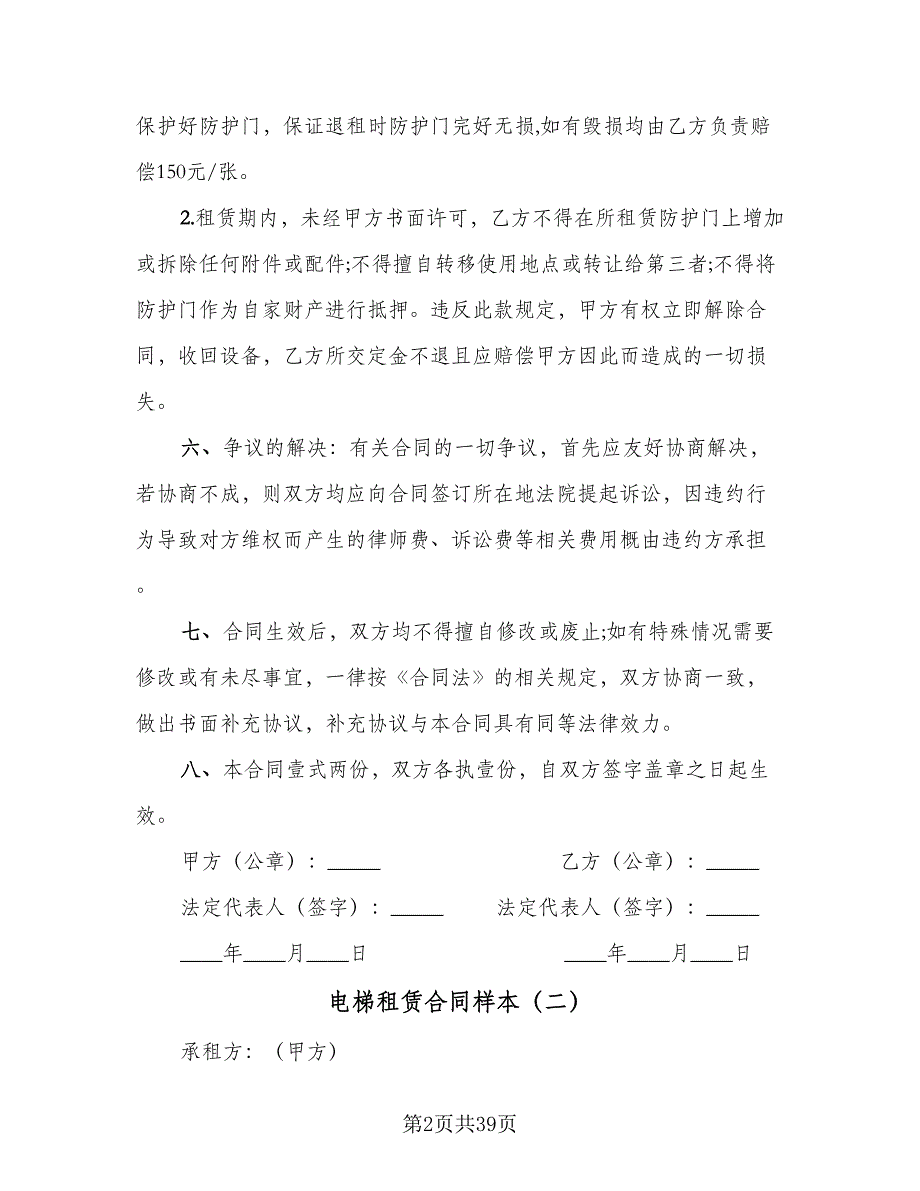 保护好防护门，保证退租时防护门完好无损,如有毁损均由乙方负责赔
偿150元/张。
2.租赁期内，未经甲方书面许可，乙方不得在所租赁防护门上增加
或拆除任何附件或配件;不得擅自转移使用地点或转让给第三者;不得将
防护门作为自家财产进行抵押。违反此款规定，甲方有权立即解除合
同，收回设备，乙方所交定金不退且应赔偿甲方因此而造成的一切损
失。
六、争议的解决：有关合同的一切争议，首先应友好协商解决，
若协商不成，则双方均应向合同签订所在地法院提起诉讼，因违约行
为导致对方维权而产生的律师费、诉讼费等相关费用概由违约方承担
。
七、合同生效后，双方均不得擅自修改或废止;如有特殊情况需要
修改或有未尽事宜，一律按《合同法》的相关规定，双方协商一致，
做出书面补充协议，补充协议与本合同具有同等法律效力。
八、本合同壹式两份，双方各执壹份，自双方签字盖章之日起生
效。
甲方（公章）：_____ 乙方（公章）：_____
法定代表人（签字）：_____ 法定代表人（签字）：_____
____年____月____日 ____年____月____日
电梯租赁合同样本（二）
承租方：（甲方）
第2页共39页